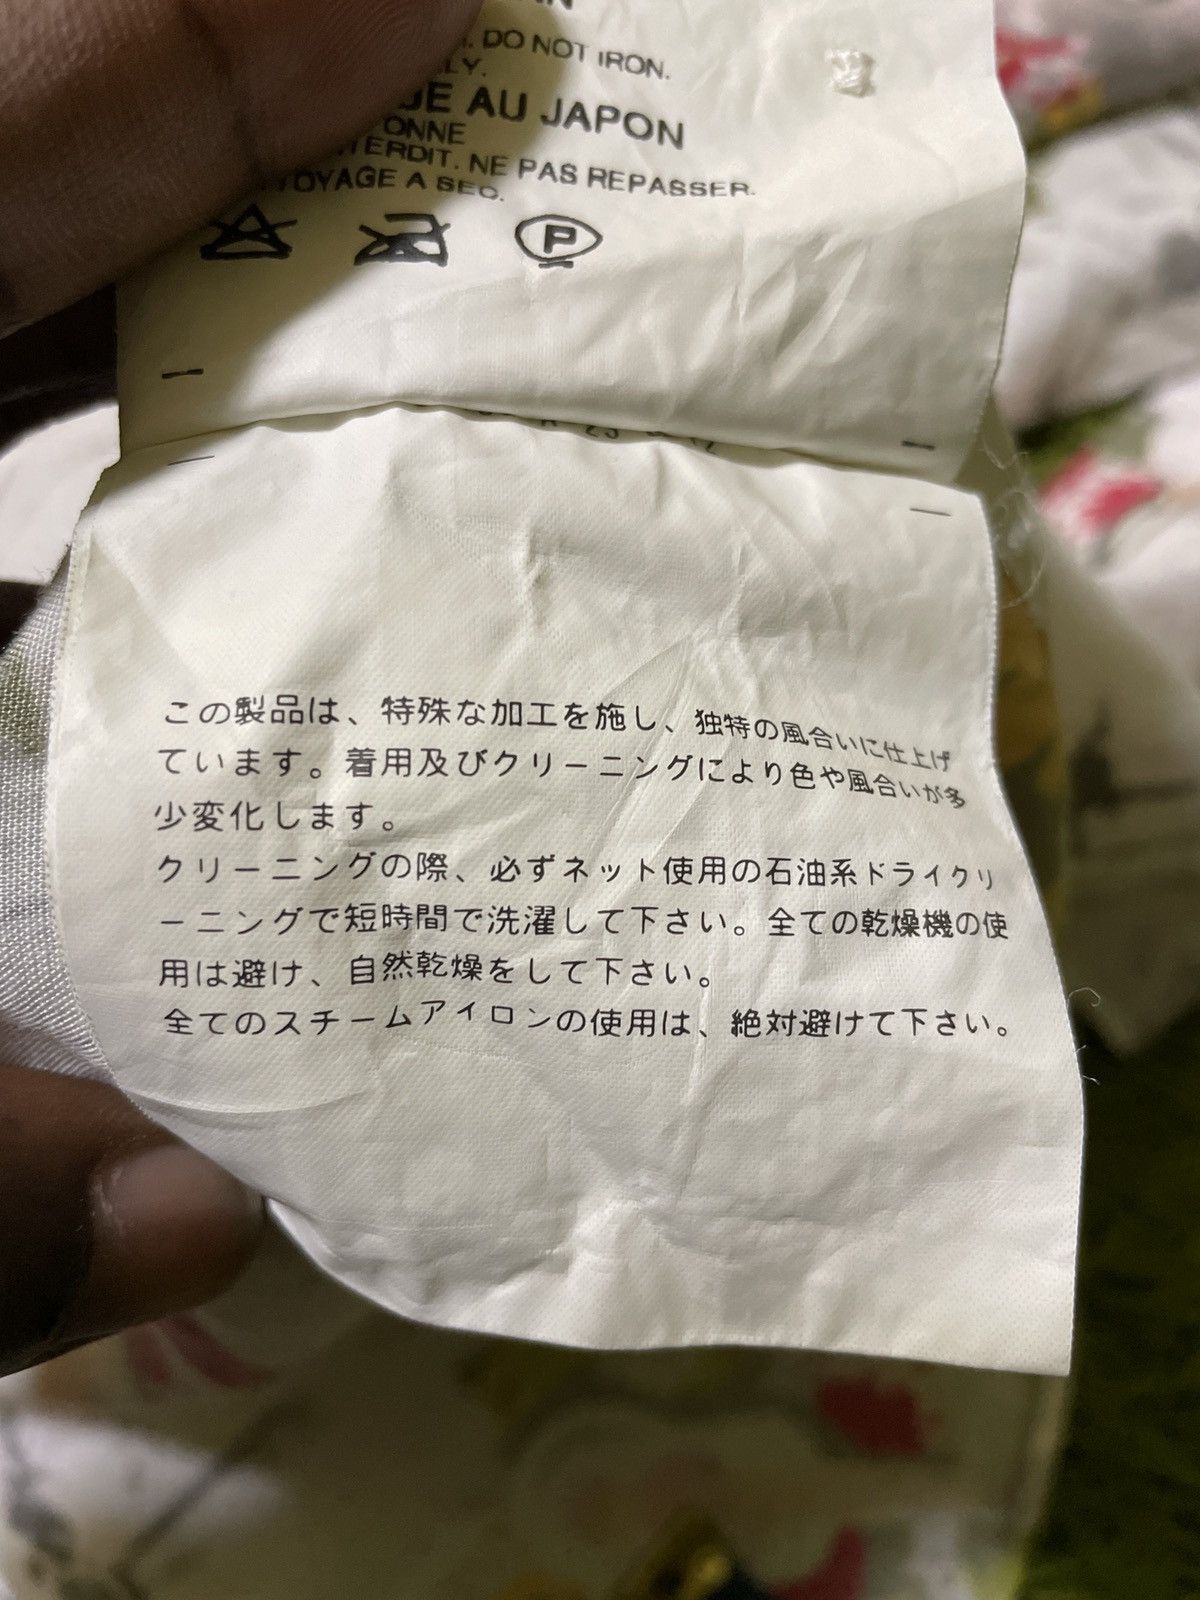 . DO NOT IRON.
LY.
UE AU JAPON
ONNE
TERDIT. NE PAS REPASSER.
TOYAGE A SEC.
P
この製品は、特殊な加工を施し、独特の風合いに仕上げ
ています。着用及びクリーニングにより色や風合いが多
少変化します。
クリーニングの際、必ずネット使用の石油系ドライクリ
ーニングで短時間で洗濯して下さい。全ての乾燥機の使
用は避け、自然乾燥をして下さい。
全てのスチームアイロンの使用は、絶対避けて下さい。